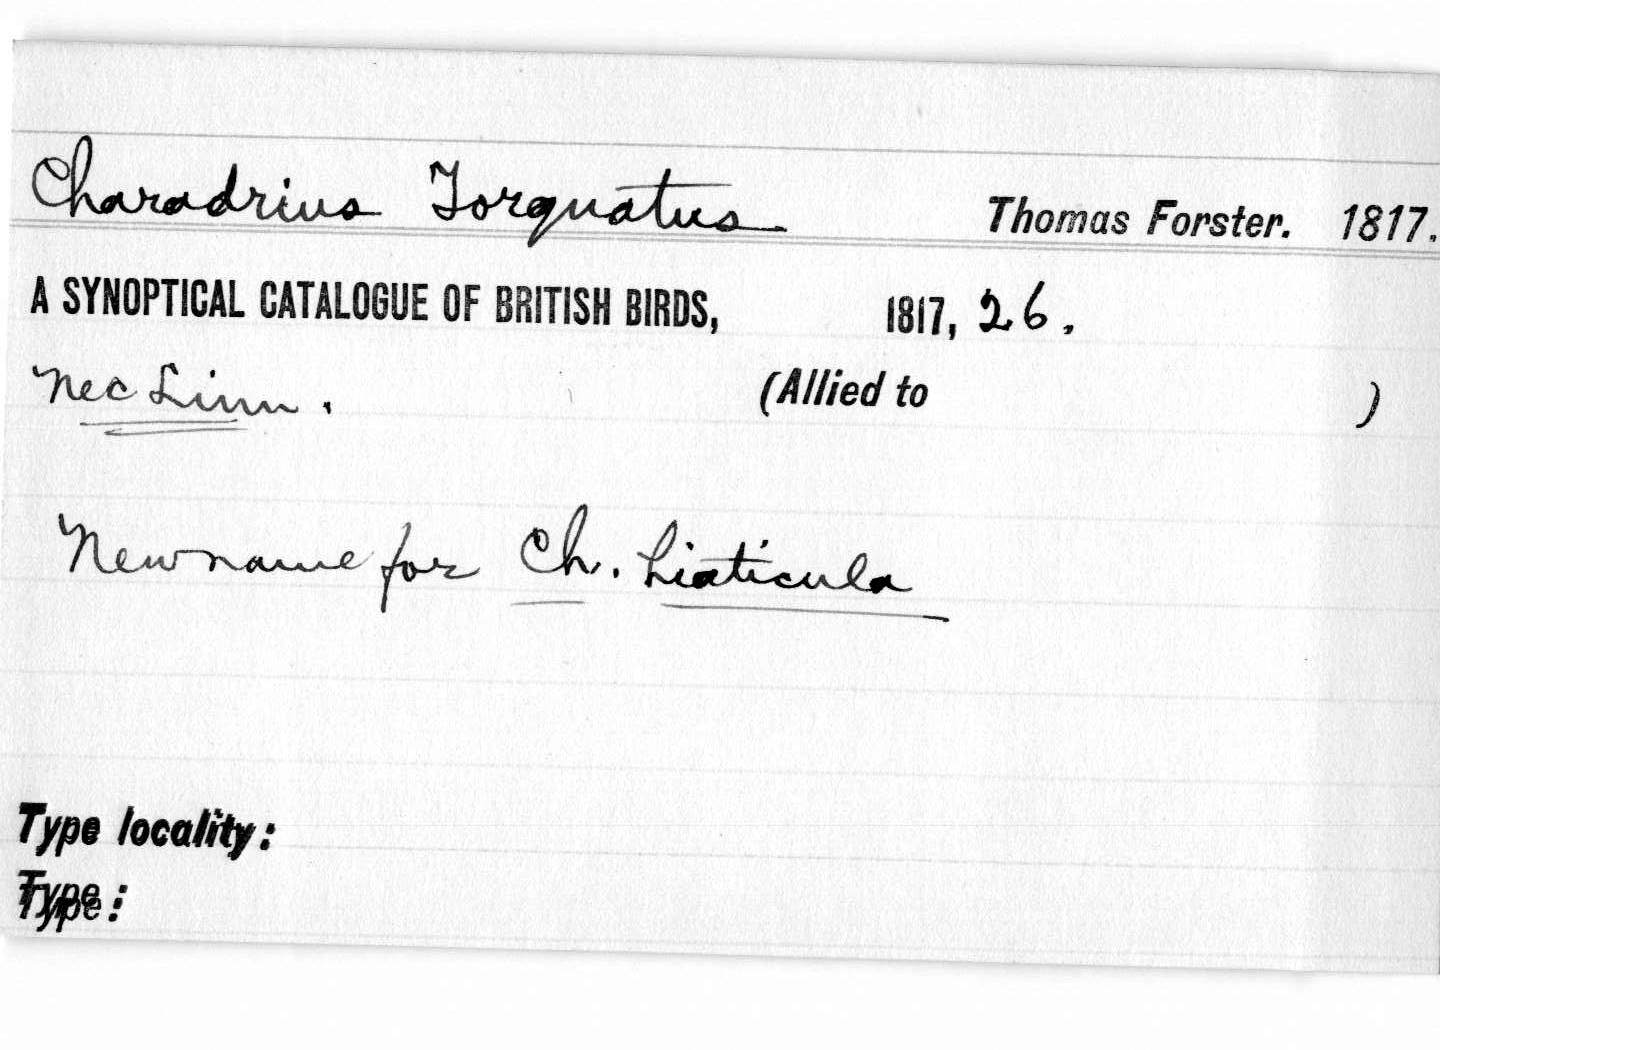 Charadrius Torquatus Thomas Forster. 1817.
A SYNOPTICAL CATALOGUE OF BRITISH BIRDS, 1817, 26.
Nec Linn. (Allied to )
New name for Ch. hiaticula
Type locality:
Type: